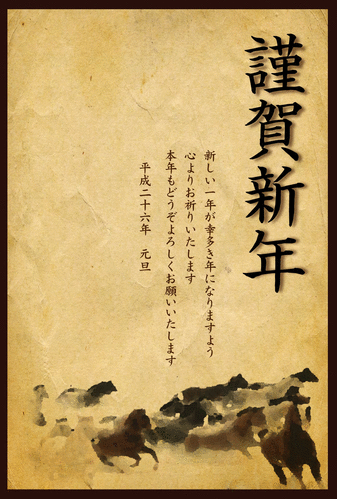 謹賀新年
新しい一年が幸多き年になりますよう
心よりお祈りいたします
本年もどうぞよろしくお願いいたします
平成二十六年　元旦